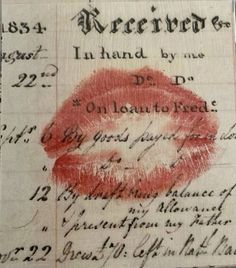 1834 Received &c
August In hand by me
22nd Do Do
"On loan to Fred:
Septr 6 By goods payed for
12 By draft being balance of
my allowance
" present from my Father
Nov 22 Drew left in